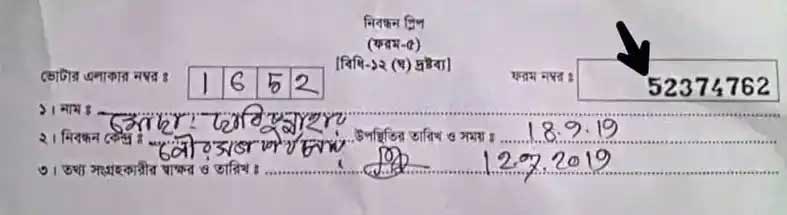 নিবন্ধন স্লিপ
(ফরম-৫)
[বিধি-১২ (ঘ) দ্রষ্টব্য]
ভোটার এলাকার নম্বর ঃ 1652 ফরম নম্বর ঃ 52374762
১। নাম ঃ মোছাঃ
২। নিবন্ধন কেন্দ্র ঃ উপস্থিতির তারিখ ও সময় ঃ 18.9.19
৩। তথ্য সংগ্রহকারীর স্বাক্ষর ও তারিখ ঃ